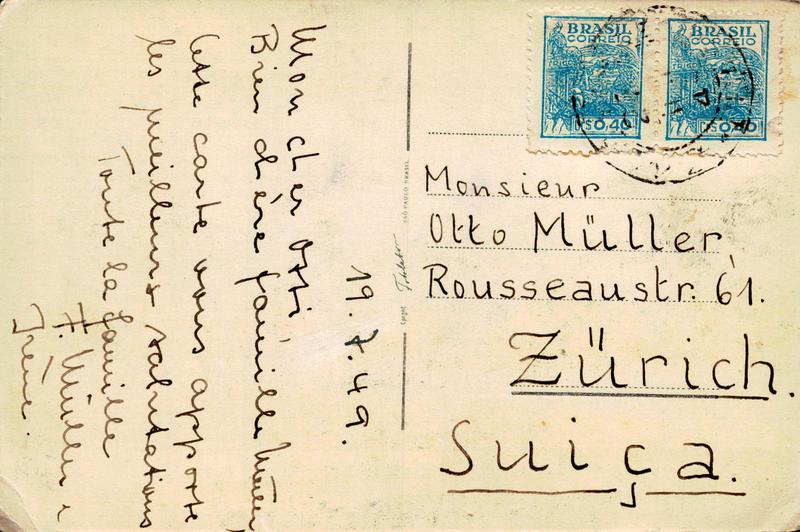 BRASIL
CORREIO
Rs 0,40
BRASIL
CORREIO
Rs 0,40
Monsieur
Otto Müller,
Rousseaustr. 61.
Zürich.
Suiça.
SÃO PAULO BRASIL
19. 7. 49.
Mon cher Otti
Bien chère famille Müller
Cette carte vous apporte
les meilleurs salutations
Toute la famille
F. Müller
Irène.